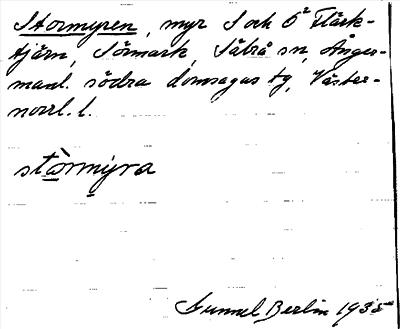 Stormyren, myr S och Ö Fläck-
tjärn, Sörmark, Säbrå sn, Ånger-
manl. södra domsagas tg, Väster-
norrl. l.
stòrmýra
Gunnel Berlin 1935